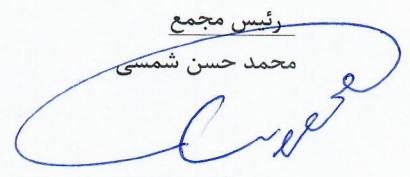 رئیس مجمع
محمد حسن شمسی